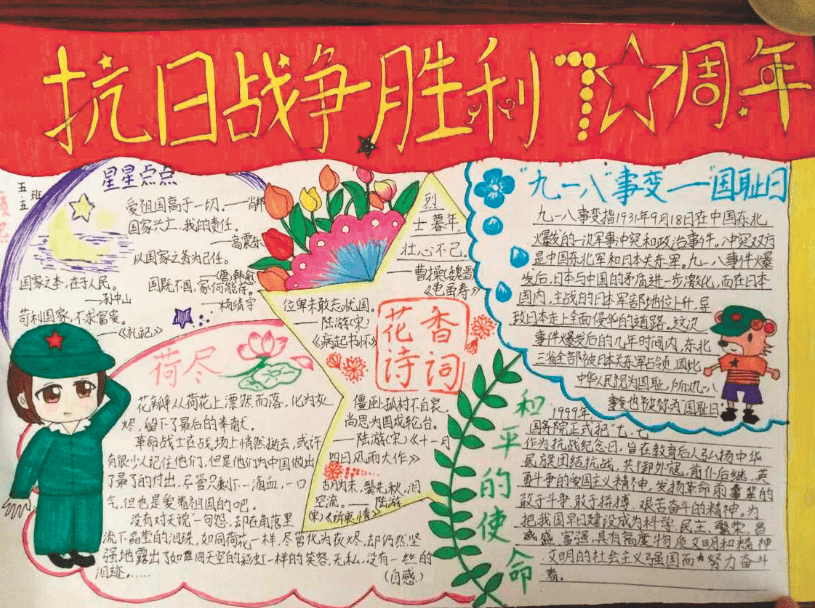 抗日战争胜利70周年
五班
星星点点
爱祖国高于一切。——肖邦
国家兴亡,我的责任。
——高震东
以国家之务为己任。
——唐·韩愈
国既不国,家何能存。
——杨靖宇
国家之本,在于人民。
——孙中山
苟利国家,不求富贵。
——《礼记》
烈
士暮年,
壮心不已。
——曹操(魏晋)
《龟虽寿》
位卑未敢忘忧国。
——陆游(宋)
《病起书怀》
僵卧孤村不自哀,
尚思为国戍轮台。
——陆游(宋)《十一月
四日风雨大作》
花香
诗词
荷尽
花瓣从荷花上漂然而落,化为灰
烬,留下了最后的奉献。
革命战士在战场上悄然逝去,或许
有很少人记住他们,但是他们为中国做出
了最了的付出,尽管只剩下一滴血,一口
气,但也是爱着祖国的吧。
没有对天说一句怨,却在角落里
流下晶莹的泪珠,如同荷花一样,尽管化为灰烬,却仍然坚
强地露出了如雨同天空的彩虹一样的笑容,无私,没有一丝的
泪迹……
(自感)
"九一八"事变——"国耻日
九一八事变指1931年9月18日在中国东北
爆发的一次军事冲突和政治事件。冲突双方
是中国东北军和日本关东军。九一八事件爆
发后,日本与中国的矛盾进一步激化,而在日本
国内,主战的日本军部地位上升,导
致日本走上全面侵华的道路。这次
事件爆发后的几年时间内,东北
三省全部被日本关东军占领,因此
中华人民视为国耻,所以九一八
事变也被称为国耻日
和平的使命
1999年,
国务院正式把"七·七
作为抗战纪念日,旨在教育后人弘扬中华
民族团结抗战,共御外寇,前仆后继,英
勇斗争的爱国主义精神,发扬革命前辈的
敢于斗争,敢于拼搏,艰苦奋斗的精神,为
把我国早日建设成为科学,民主,繁荣,昌
盛,富强,具有高度物质文明和精神
文明的社会主义强国而努力奋斗
着。